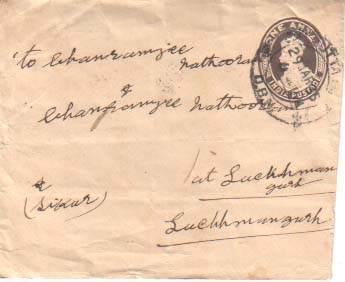 to Chanramjee
Nathooram
&
Chanframjee Nathooram
at Luckhman
gurh
&
(Sikar)
Luchhmangurh
ONE ANNA
INDIA POSTAGE